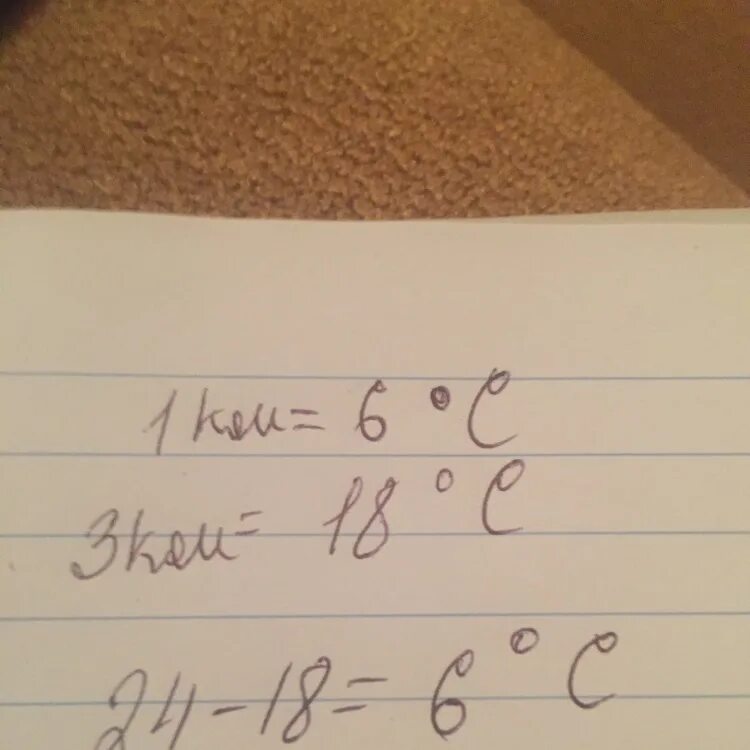 1 км = 6 °C
3 км = 18 °C
24 - 18 = 6 °C